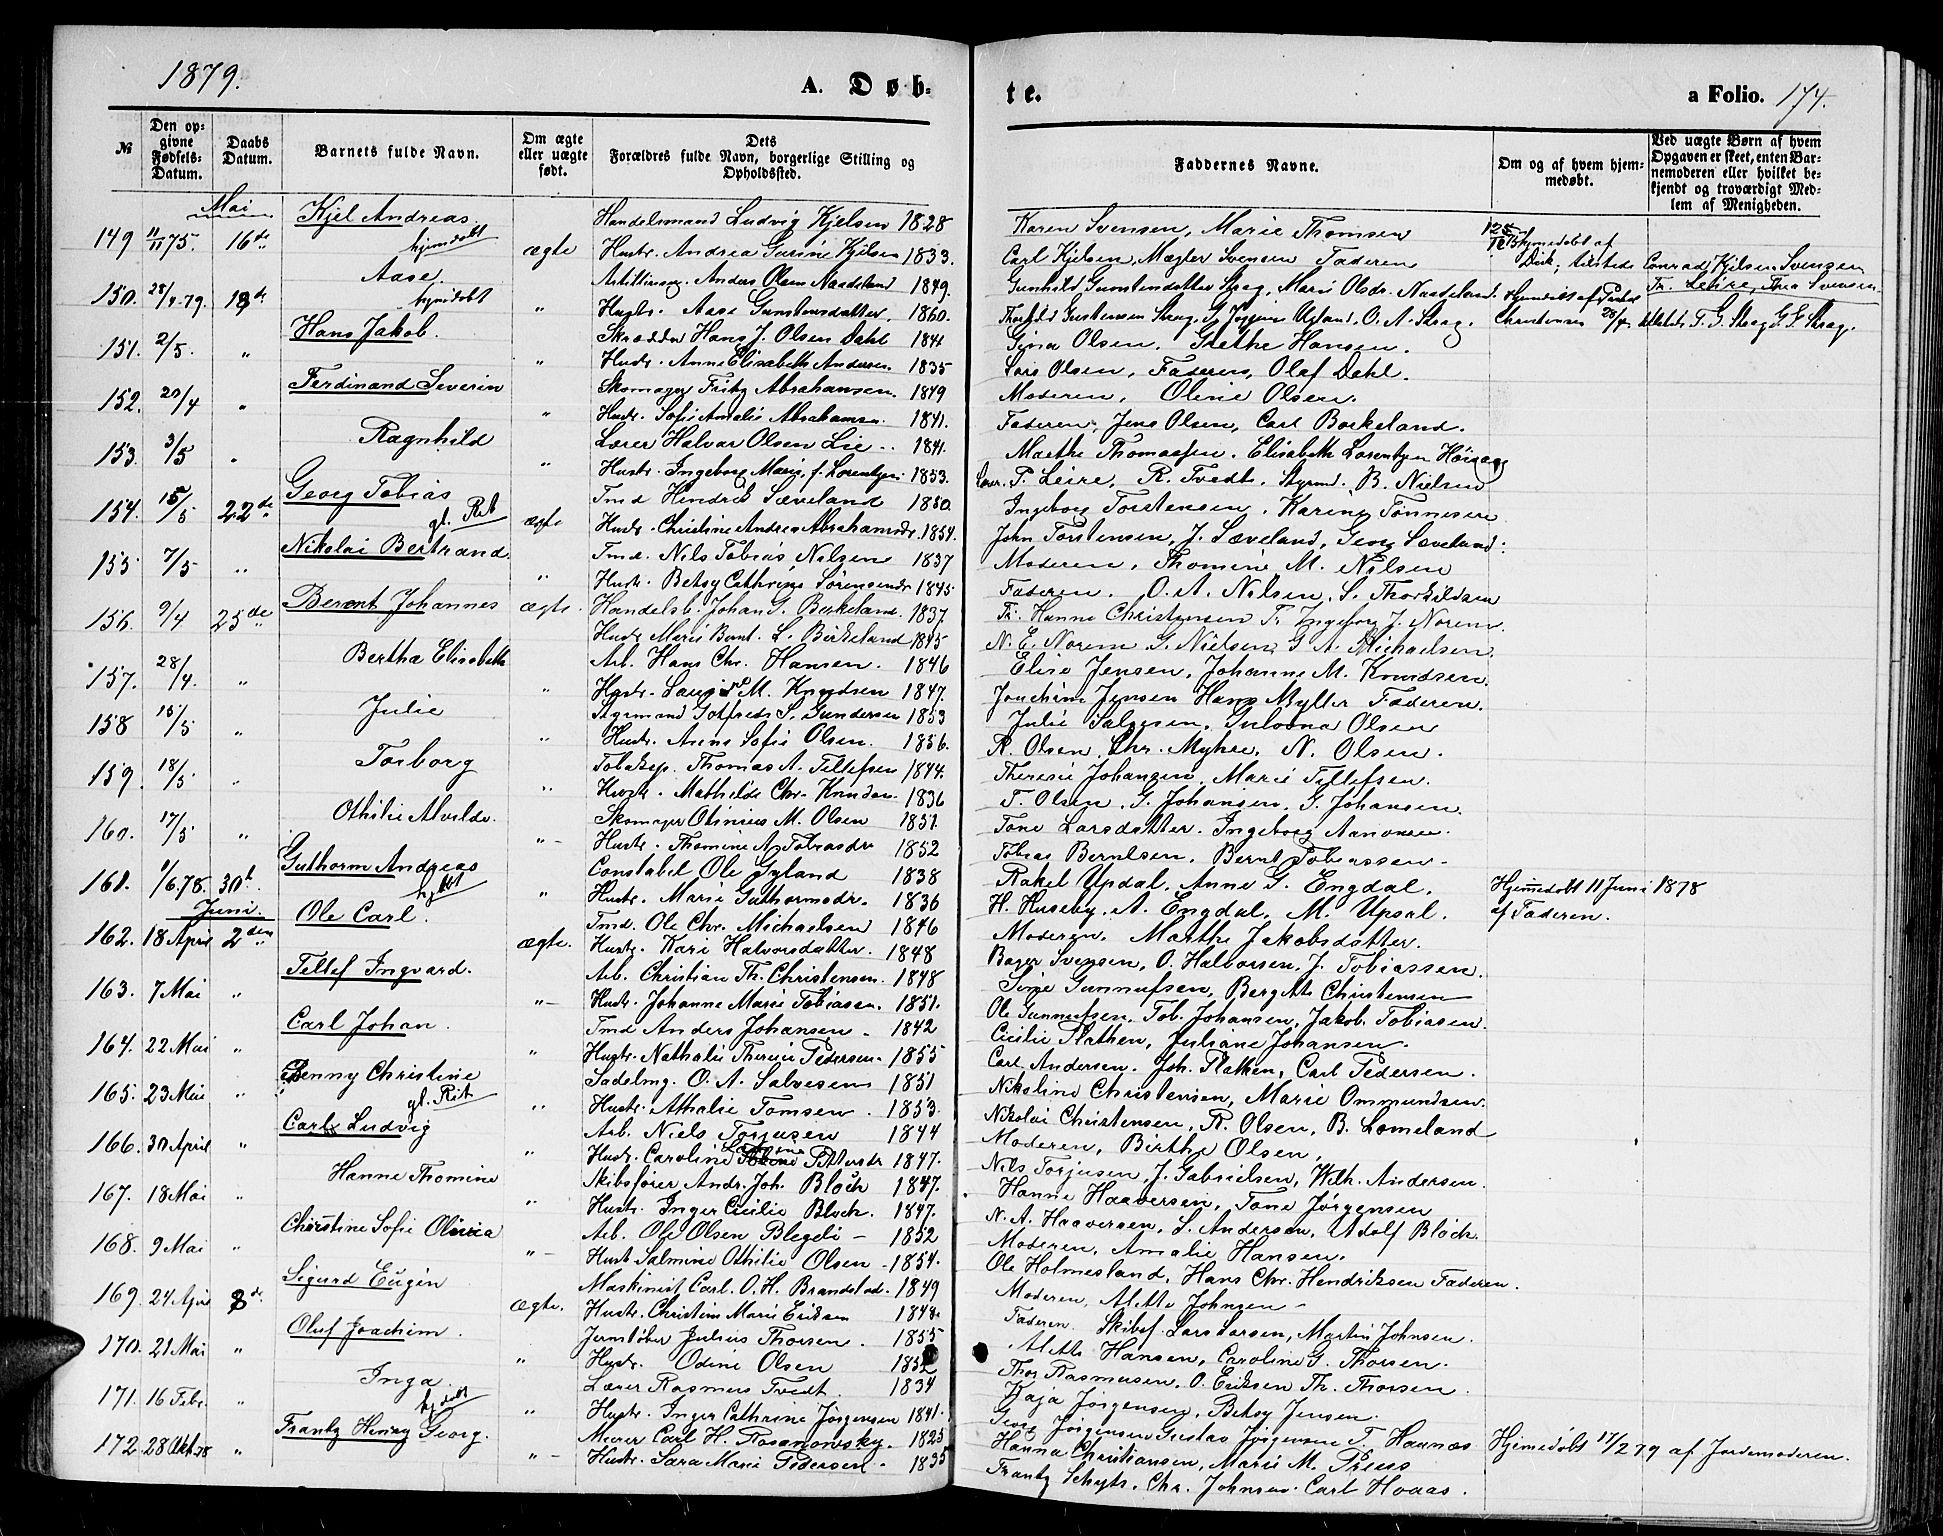 1879.
A. Døb-
te.
a Folio. 174.
№
Den opgivne Fødsels-Datum.
Daabs Datum.
Barnets fulde Navn.
Om ægte eller uægte født.
Dets Forældres fulde Navn, borgerlige Stilling og Opholdssted.
Faddernes Navne.
Om og af hvem hjemmedøbt.
Ved uægte Børn af hvem Opgaven er skeet, enten Barnemoderen eller hvilket bekjendt og troværdigt Medlem af Menigheden.
Mai
149 11/11 75. 16de Kjel Andreas. hjemdøbt ægte
Handelsmand Ludvig Kjelsen 1828
Hustr. Andrea Gurine Kjelsen 1833.
Karen Svensen, Marie Thomsen
Carl Kjelsen, Mægler Svensen Faderen
hjemedøbt af
Conrad Kjelsen Svensen
150. 28/4 79. 18de Aase. hjemdøbt "
Anders Olsen Naadeland 1849.
Hustr. Aase Gunstensdatter. 1860.
Gunhild Gunstensdatter Strag, Marie Olsdr. Naadeland.
Ugland, O. A. Strag.
Hjemdøbt af
Christensen 28/4
151. 2/5. " Hans Jakob. "
Skrædder Hans J. Olsen Dahl 1841
Hustr. Anne Elisabeth Andersen. 1835
Olsen, Grethe Hansen.
Lars Olsen, Faderen, Olaf Dahl.
152. 20/4 " Ferdinand Severin "
Skomager Fritz Abrahamsen. 1849
Hustr. Sofie Amalie Abrahamsen. 1841.
Moderen, Oline Olsen.
Faderen, Jens Olsen, Carl Birkeland.
153. 3/5 " Ragnhild "
Lærer Halvor Olsen Lie 1841.
Hustr. Ingeborg Marie f. Lorentzen. 1853.
Marthe Thomassen, Elisabeth Lorentzen
Lær. T. Leire, R. Tvedt, Styrmd. B. Nielsen
154. 15/5 22de Georg Tobias gl. Rit ægte
Tmd Hendrik Sæveland 1850.
Hustr. Christine Andrea Abrahamsdr. 1854.
Ingeborg Torstensen, Karine Tønnesen
John Torstensen, J. Sæveland, Georg Sæveland.
155. 7/5 " Nikolai Bertrand. "
Tmd. Nils Tobias Nilsen 1837
Hustr. Betsy Cathrine Sørensendr 1845.
Moderen, Thomine M. Nilsen
Faderen. O. A. Nilsen, S. Thorkildsen
156. 9/4 25de Berent Johannes ægte.
Handelsb. Johan G. Birkeland. 1837.
Hustr. Marie Bernt. L. Birkeland 1845
Fr. Hanne Christensen Fr. Ingeborg J. Norem.
N. E. Norem G. Nielsen, G. A. Michaelsen.
157. 28/4. " Bertha Elisabeth "
Arb. Hans Chr. Hansen. 1846
Hustr. M. Knudsen 1847.
Elise Jensen, Johanne M. Knudsen.
Joachim Jensen Hans Myller Faderen.
158 15/5 " Julie "
Styrmand Gotfreds S. Gundersen 1853
Hustr. Anne Sofie Olsen. 1856.
Julie Salvesen, Gulovna Olsen
R. Olsen, Chr. Myhre, N. Olsen.
159. 18/5 " Torborg "
Tobaksp. Thomas A. Tellefsen 1844.
Hustr. Mathilde Chr. Knudsen. 1836
Theresie Johansen, Marie Tellefsen.
T. Olsen, G. Johansen, G. Johansen.
160. 17/5 " Othilie Alvilde. "
Skomager Otinius M. Olsen 1851.
Hustr. Thomine A. Tobiasdr 1852
Tone Larsdatter. Ingeborg Aanonsen.
Tobias Berntsen, Bernt Tobiassen.
161. 1/6 78. 30te. Guthorm Andreas hjdbt "
Constabel Ole Gyland 1838
Hustr. Marie Guthormsdr. 1836
Rakel Updal, Anne G. Engdal.
H. Huseby. A. Engdal, M. Upsal.
Hjemedøbt 11 Juni 1878
af Faderen.
Juni.
162. 18 April 2den Ole Carl. ægte.
Tmd. Ole Chr. Michaelsen 1846
Hustr. Kari Halvorsdatter. 1848
Moderen. Marthe Jakobsdatter.
Bager Svensen, O. Halvorsen, J. Tobiassen.
163. 7 Mai " Tellef Ingvard. "
Arb. Christian Th. Christensen. 1848
Hustr. Johanne Marie Tobiasen. 1851.
Sine Gunnufsen, Bergitte Christensen
Ole Gunnufsen, Tob. Johansen, Jakob Tobiasen.
164. 22 Mai " Carl Johan. "
Tmd Anders Johansen 1842
Hustr. Nathalie Theresie Pedersen. 1855
Cicilie Flathen, Juliane Johansen.
Carl Andersen. Joh. Flatten, Carl Pedersen.
165. 23 Mai " Jenny Christine gl. Rit "
Sadelmg. O. A. Salvesen 1851
Hustr. Athalie Tomsen. 1853.
Nikoline Christensen, Marie Ommundsen.
Nikolai Christensen, R. Olsen, B. Lomeland
166. 30 April " Carl Ludvig "
Arb. Niels Torjusen 1844
Hustr. Caroline Pettersdr 1847.
Moderen, Birthe Olsen,
Nils Torjusen, J. Gabrielsen, Wilh. Andersen.
167. 18 Mai " Hanne Thomine "
Skibsfører Andr. Joh. Bloch 1847.
Hustr. Inger Cicilie Bloch. 1847.
Hanne Haaversen, Tone Jørgensen
N. A. Haaversen, S. Andersen, Adolf Bloch.
168. 9 Mai " Christine Sofie "
Arb. Ole Olsen Blegeli 1852
Hustr Salmine Othilie Olsen 1854.
Moderen, Amalie Hansen.
Ole Holmesland, Hans Chr. Hendriksen Faderen.
169. 24 April 8de. Sigurd Eugin ægte.
Maskinist Carl. O. H. Brandstad. 1849
Hustr. Christine Marie Eriksen 1848.
Moderen, Alette Johnsen
Faderen. Skibsf. Lars Larsen, Martin Johnsen.
170. 21 Mai " Oluf Joachim. "
Jernstøber Julius Thorsen. 1855
Hustr. Odine Olsen
Alette Hansen, Caroline G. Thorsen.
Thor Rasmusen, O. Eriksen Th. Thorsen
171. 16 Febr. " Inga. hjdbt "
Lærer Rasmus Tvedt. 1834
Hustr. Inger Cathrine Jørgensen 1841.
Kaja Jørgensen, Betsy Jensen.
Georg Jørgensen Gustav Jørgensen T. Haanæs
Hjemedøbt 17/2 79 af Jordemoderen.
172 28 Okt 78 " Frantz Henry Georg. "
Murer Carl H. Rosanowsky. 1825
Hustr. Sara Marie Pedersen. 1835
Hanna Christiansen, Marie M. Preus
Frantz Schyts, Chr. Johnsen. Carl Hoaas.